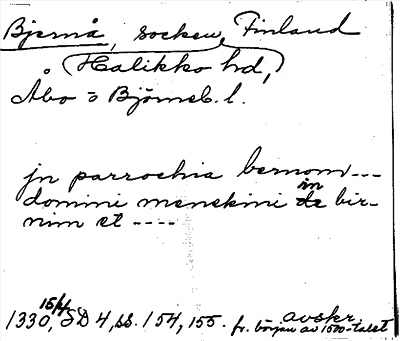 Bjernå, socken, Finland
(Halikko hd,)
Åbo o Björneb. l.
jn parrochia bernom---
domini menekini in bir-
nim et ----
1330, 15/4 SD 4, ss. 154, 155. avskr. fr. början av 1500-talet